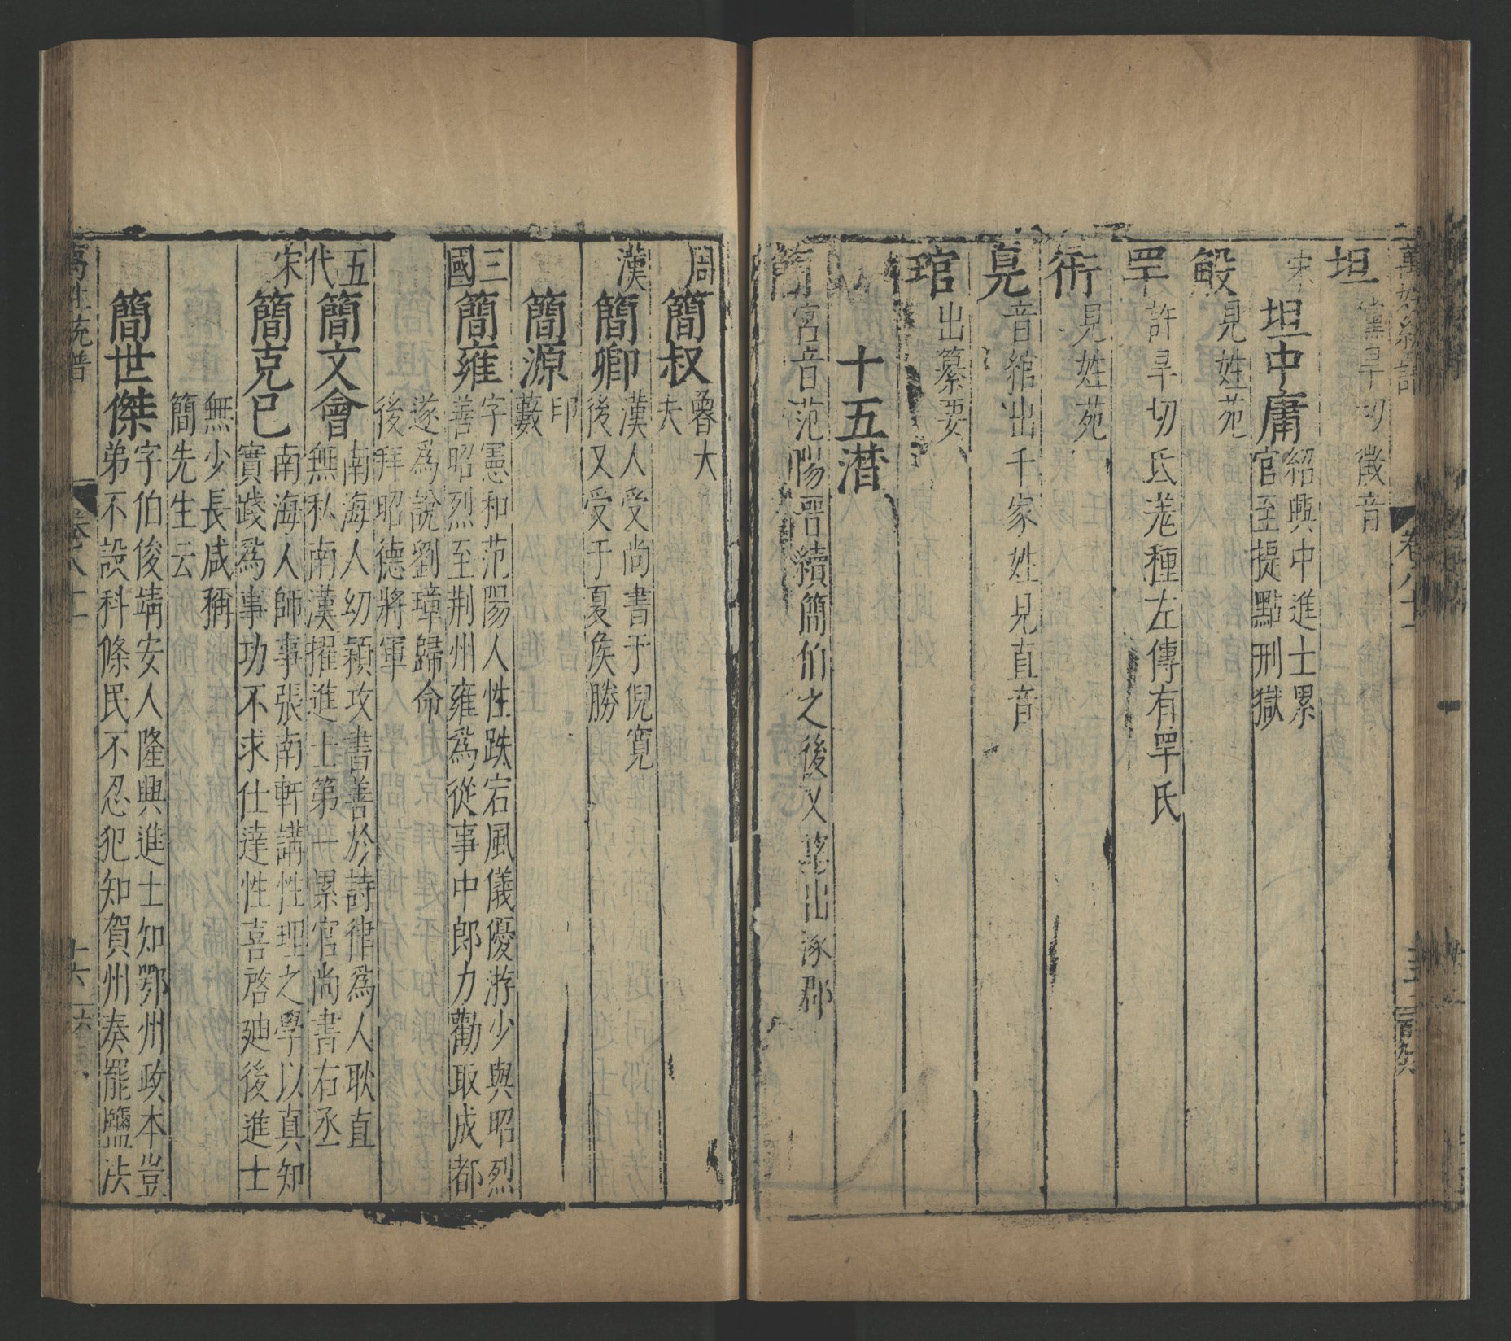 萬姓統譜 卷八十一
坦
儻旱切徵音
宋
坦中庸
紹興中進士累
官至提點刑獄
毈
見姓苑
罕
許旱切氏羌種左傳有罕氏
衎
見姓苑
音綰出千家姓見直音
琯
出纂要
十五潸
簡
宮音范陽晉續簡伯之後又望出涿郡
周
簡叔
魯大
夫
漢
簡卿
漢人受尚書于倪寬
後又受于夏侯勝
簡源
印
藪
三國
簡雍
字憲和范陽人性跌宕風儀優游少與昭烈
善昭烈至荆州雍爲從事中郎力勸取成都
遂爲說劉璋歸命
後拜昭德將軍
五代
簡文會
南海人幼穎攻書善於詩律爲人耿直
無私南漢擢進士第一累官尚書右丞
宋
簡克己
南海人師事張南軒講性理之學以真知
實踐爲事功不求仕達性喜啓廸後進士
無少長咸稱
簡先生云
簡世傑
字伯俊靖安人隆興進士知鄂州政本豈
弟不設科條民不忍犯知賀州奏罷鹽法
萬姓統譜
卷八十一
十六